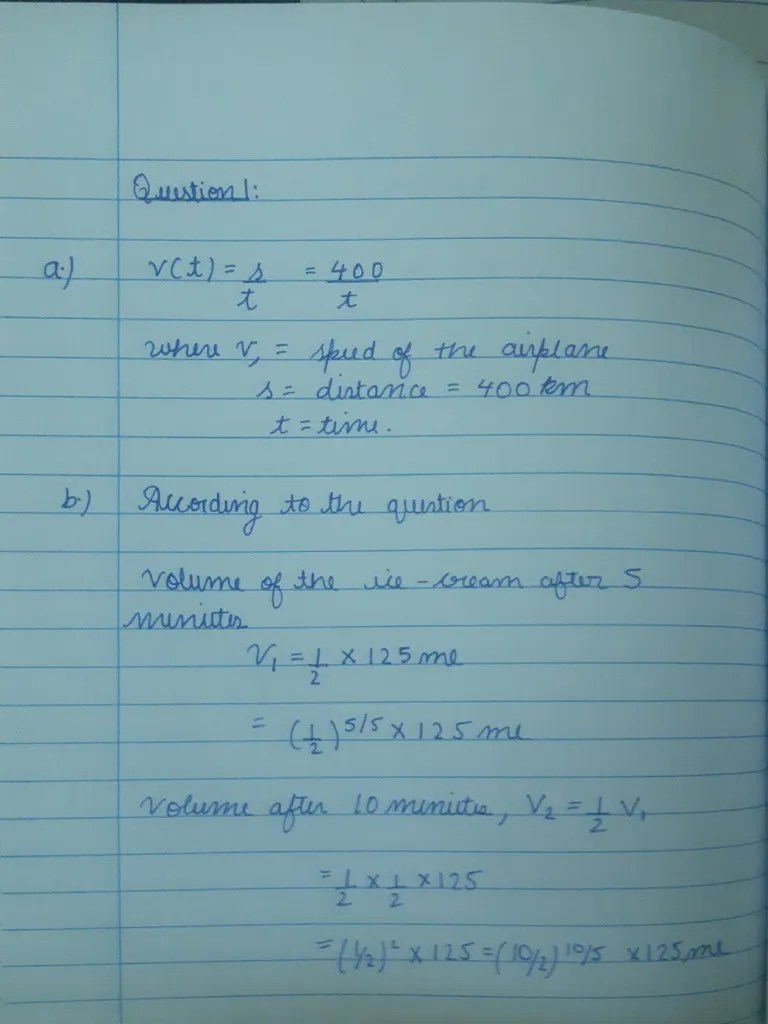 Question 1:
a.) v(t) = s/t = 400/t
where v, = speed of the airplane
s = distance = 400 km
t = time.
b.) According to the question
Volume of the ice-cream after 5
minutes
V₁ = 1/2 × 125 ml
= (1/2)^5/5 × 125 ml
Volume after 10 minutes, V₂ = 1/2 V₁
= 1/2 × 1/2 × 125
= (1/2)² × 125 = (10/2)^10/5 × 125 ml